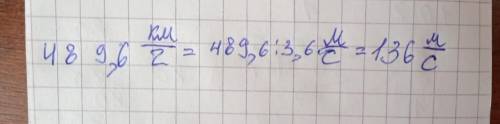 489,6 км/г = 489,6:3,6 м/с = 136 м/с